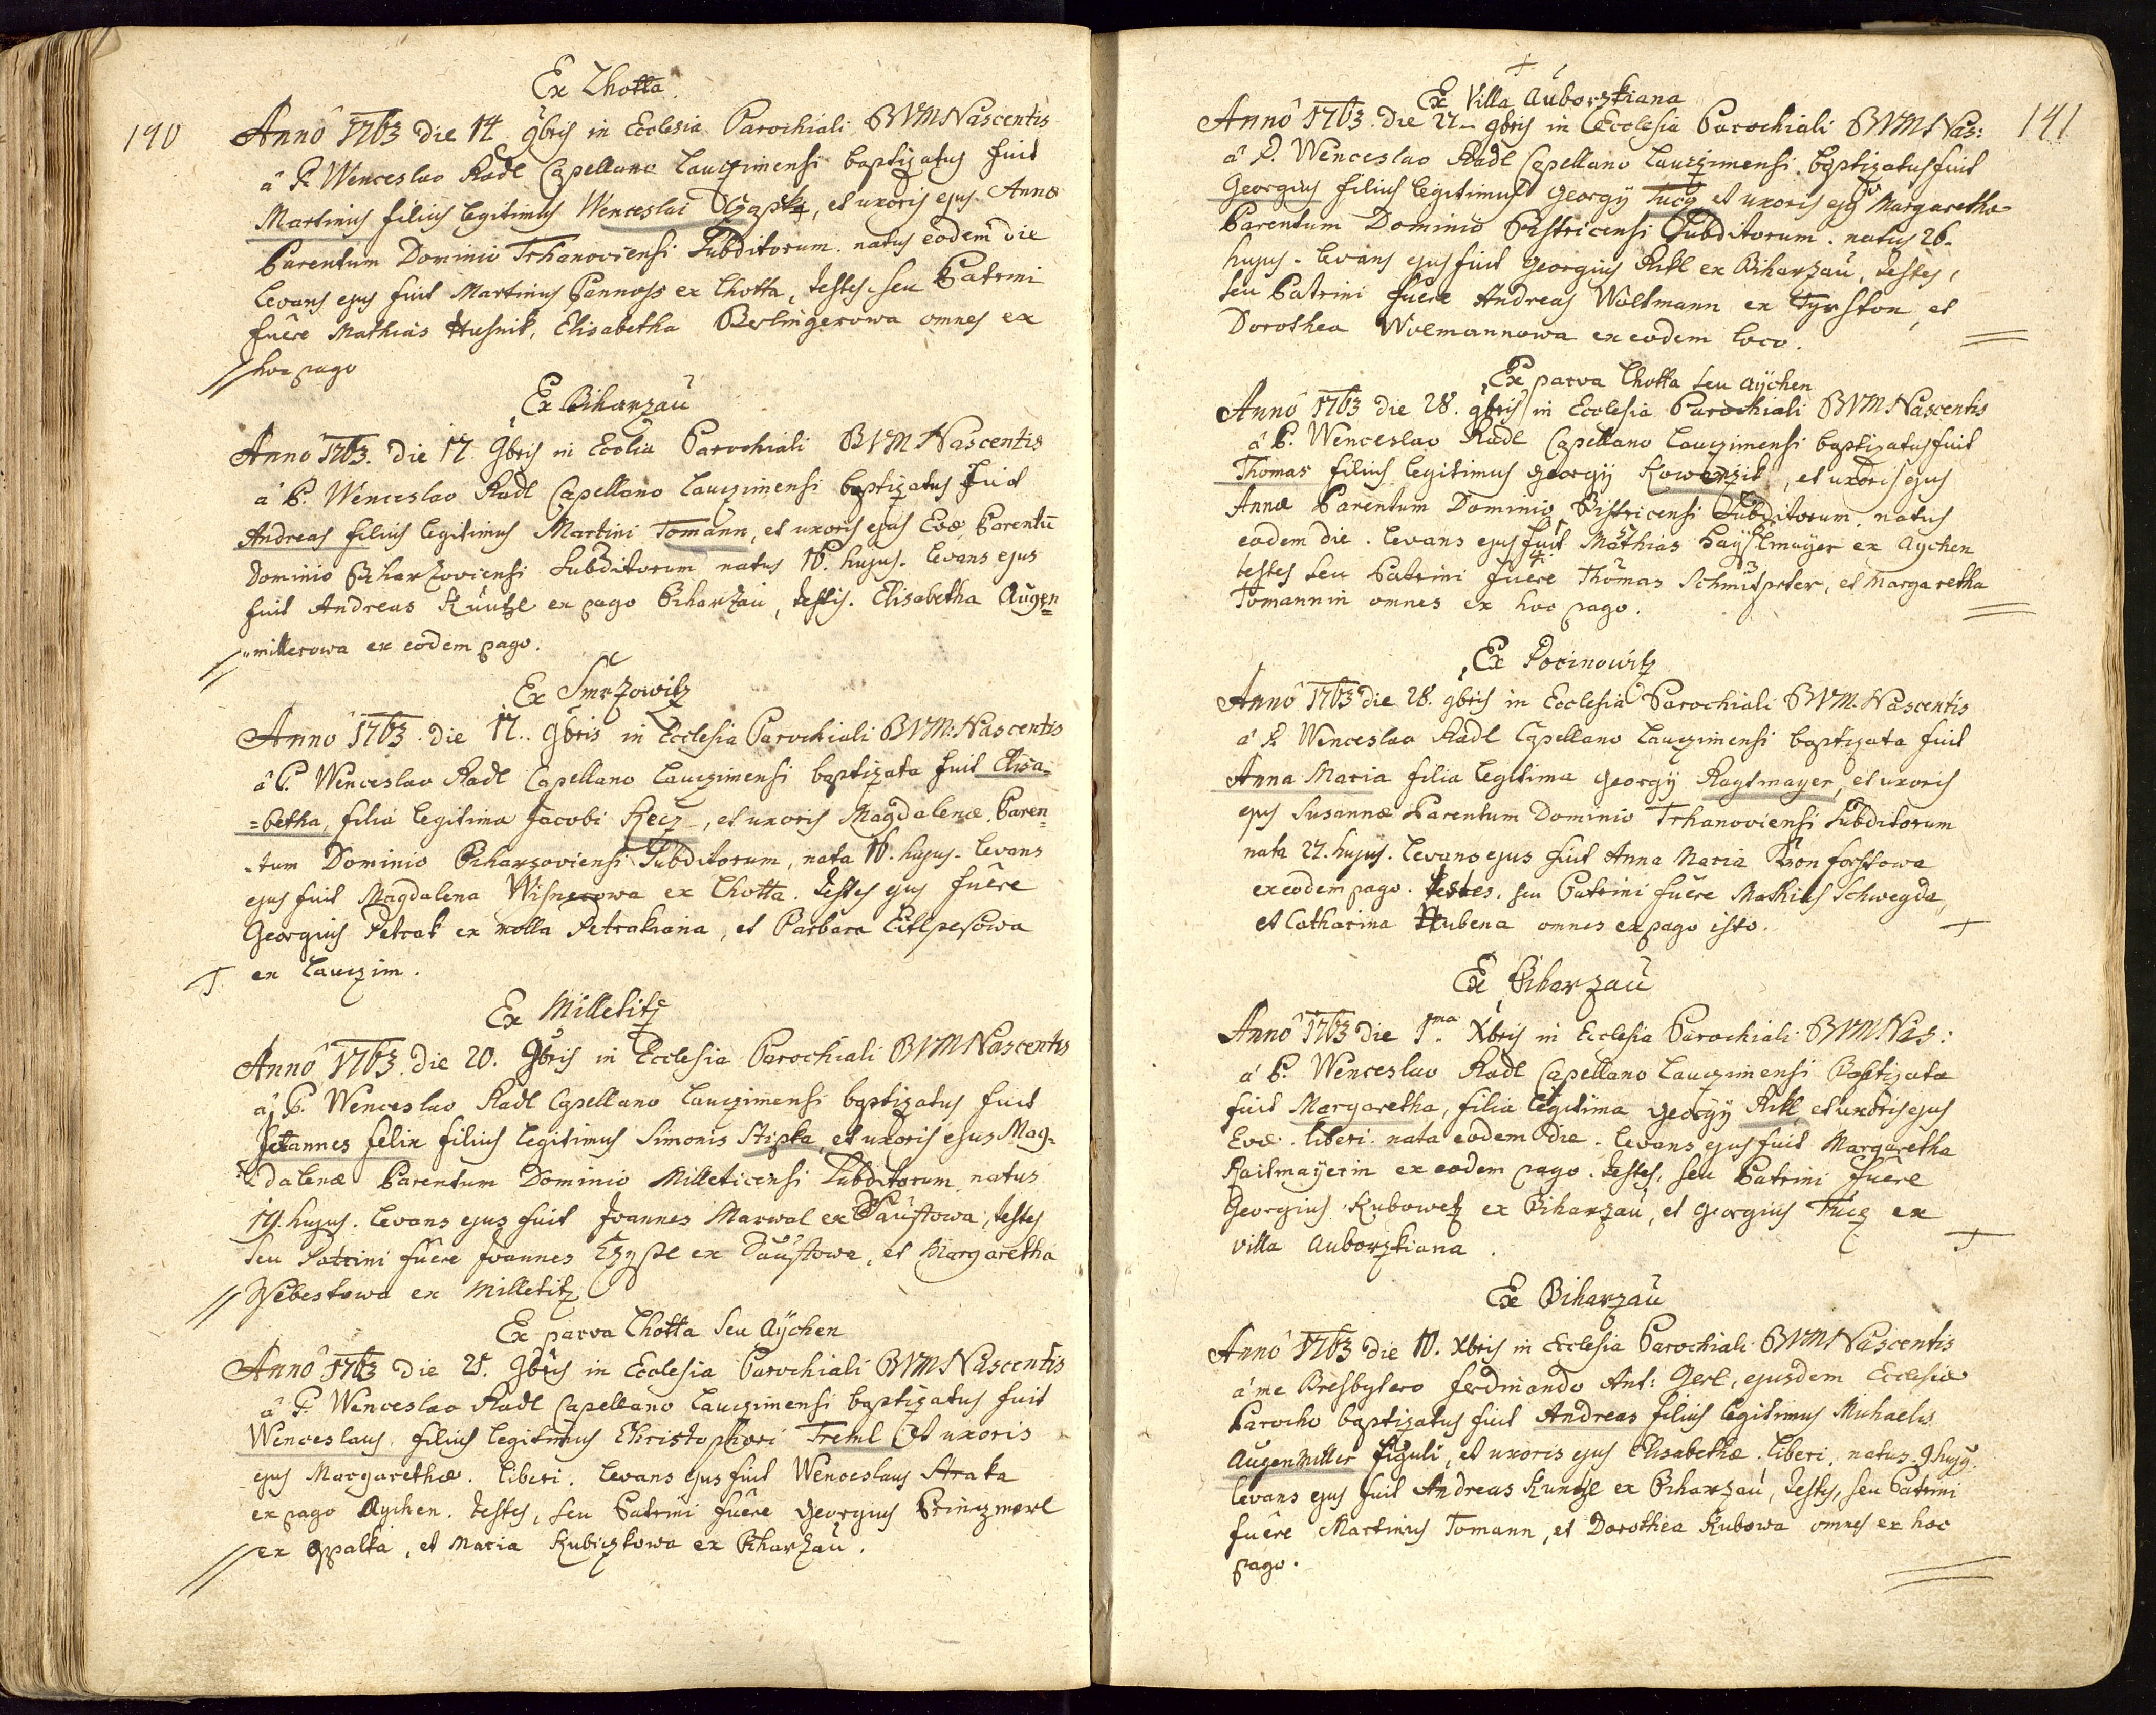 190
Ex Lhotta
Anno 1763 die 14 9bris in Ecclesia Parochiali BVM Nascentis
à P. Wenceslao Radl Capellano Lauczimensi baptizatus fuit
Martinus filius legitimus Wenceslai Czapka, et uxoris ejus Annæ
Parentum Dominio Trhanoviensi Subditorum. natus eodem die
levans ejus fuit Martinus Pannoss ex Lhotta, testes seu Patrini
fuêre Mathias Husnik, Elisabetha Berlingerowa omnes ex
hoc pago
Ex Biharzau
Anno 1763. die 17. 9bris in Ecclia Parochiali BVM Nascentis
à P. Wenceslao Radl Capellano Lauczimensi baptizatus fuit
Andreas filius legitimus Martini Tomann, et uxoris ejus Evæ Parentũ
Dominio Biharzoviensi Subditorum natus 16. hujus. levans ejus
fuit Andreas Kuntzl ex pago Biharzau, testis. Elisabetha Augen=
=millerowa ex eodem pago.
Ex Smrzowitz
Anno 1763. die 17.. 9bris in Ecclesia Parochiali BVM. Nascentis
à P. Wenceslao Radl Capellano Lauczimensi baptizata fuit Elisa=
=betha, filia legitima Jacobi Kecz, et uxoris Magdalenæ. Paren=
=tum Dominio Biharzoviensi Subditorum, nata 16. hujus. levans
ejus fuit Magdalena Wisnerowa ex Lhotta. testes ejus fuêre
Georgius Petrak ex molla Petrakiana, et Barbara
ex Lauczim.
Ex Milletitz
Anno 1763. die 20. 9bris in Ecclesia Parochiali BVM Nascentis
à P. Wenceslao Radl Capellano Lauczimensi baptizatus fuit
Joannes felix filius legitimus Simonis Stipka, et uxoris ejus Mag=
=dalenæ Parentum Dominio Milleticensi Subditorum. natus
19. hujus. levans ejus fuit Joannes Marwal ex Paustowa, testes
seu Patrini fuêre Joannes ex Paustowa, et Margaretha
ex Milletitz
Ex parva Lhotta seu Aÿchen
Anno 1763 die 25. 9bris in Ecclesia Parochiali BVM Nascentis
à P. Wenceslao Radl Capellano Lauczimensi baptizatus fuit
Wenceslaus filius legitimus Christophori Treml et uxoris
ejus Margarethæ. liberi. levans ejus fuit Wenceslaus Straka
ex pago Aychen. testes, seu Patrini fuêre Georgius Princzmerl
ex Oppalka, et Maria Kubiczkowa ex Biharzau.
191
Ex Villa Auborzkiana
Anno 1763. die 27. 9bris in Ecclesia Parochiali BVM Nas:
à P. Wenceslao Radl Capellano Lauczimensi. baptizatus fuit
Georgius filius legitimus Georgÿ Tucz, et uxoris ejus Margarethæ
Parentum Dominio Bistricensi Subditorum. natus 26.
hujus. levans ejus fuit Georgius Ritl ex Biharzau, testes,
seu Patrini fuêre Andreas Woltmann ex, et
Dorothea Wolmannowa ex eodem loco.
Ex parva Lhotta seu Aÿchen
Anno 1763 die 28. 9bris in Ecclesia Parochiali BVM Nascentis
à P. Wenceslao Radl Capellano Lauczimensi baptizatus fuit
Thomas filius legitimus Georgÿ Kowarzik, et uxoris ejus
Annæ Parentum Dominio Bistricensi Subditorum. natus
eodem die. levans ejus fuit Mathias Haÿslmaÿer ex Aychen
testes seu Patrini fuêre Thomas, et Margaretha
Tomannin omnes ex hoc pago.
Ex Pocinowitz
Anno 1763 die 28. 9bris in Ecclesia Parochiali BVM. Nascentis
à P. Wenceslao Radl Capellano Lauczimensi baptizata fuit
Anna Maria filia legitima Georgÿ Raytmayer, et uxoris
ejus Susannæ Parentum Dominio Trhanoviensi Subditorum
nata 27. hujus. levans ejus fuit Anna Maria
ex eodem pago. testes, seu Patrini fuêre Mathias Schwegda,
et Catharina Hubena omnes ex pago isto.
Ex Biharzau
Anno 1763 die 1.ma Xbris in Ecclesia Parochiali BVM Nas:
à P. Wenceslao Radl Capellano Lauczimensi Baptizata
fuit Margaretha, filia legitima Georgÿ Ritl, et uxoris ejus
Evæ. liberi. nata eodem die. levans ejus fuit Margaretha
Raitmaÿerin ex eodem pago. testes, seu Patrini fuêre
Georgius Kubowetz ex Biharzau, et Georgius Tucz ex
villa Auborzkiana.
Ex Biharzau
Anno 1763 die 10. Xbris in Ecclesia Parochiali BVM Nascentis
à me Presbytero ferdinando Ant: Gerl, ejusdem Ecclesiæ
Parocho baptizatus fuit Andreas filius legitimus Michaelis
Augenmiller figuli, et uxoris ejus Elisabethæ. liberi. natus 9 hujus.
levans ejus fuit Andreas Kuntzl ex Biharzau, testes, seu Patrini
fuêre Martinus Tomann, et Dorothea Kubowa omnes ex hoc
pago.